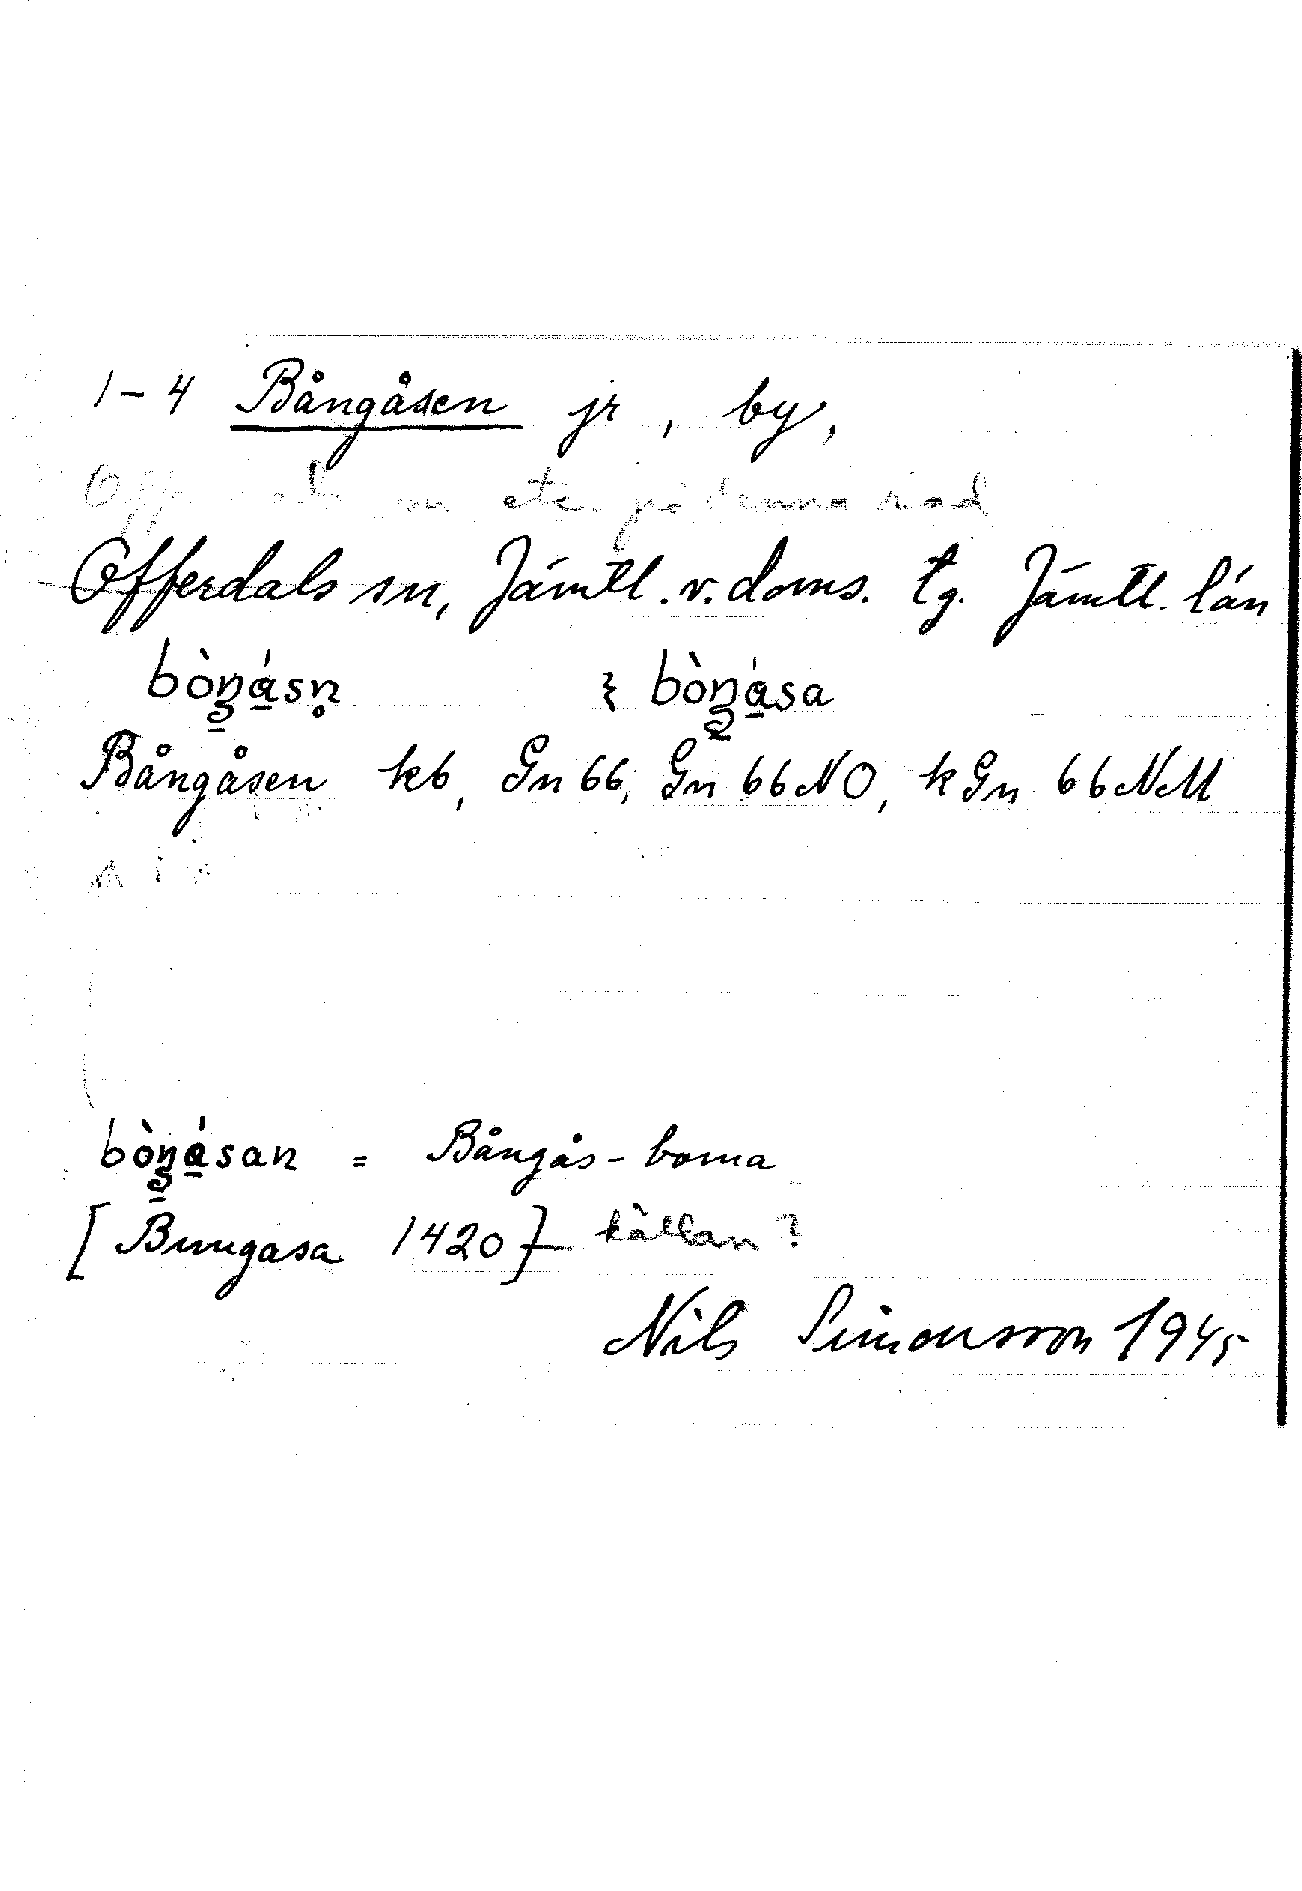 1-4 Bångåsen jr, by,
etc. på denna rad
Offerdals sn, Jämtl. v. doms. tg. Jämtl. län
bòŋásṇ ⸾ bòŋása
Bångåsen kb, Gn 66, Gn 66 NO, kGn 66 NM
bòŋásan = Bångås-borna
[Bungasa 1420] källan?
Nils Simonsson 1945